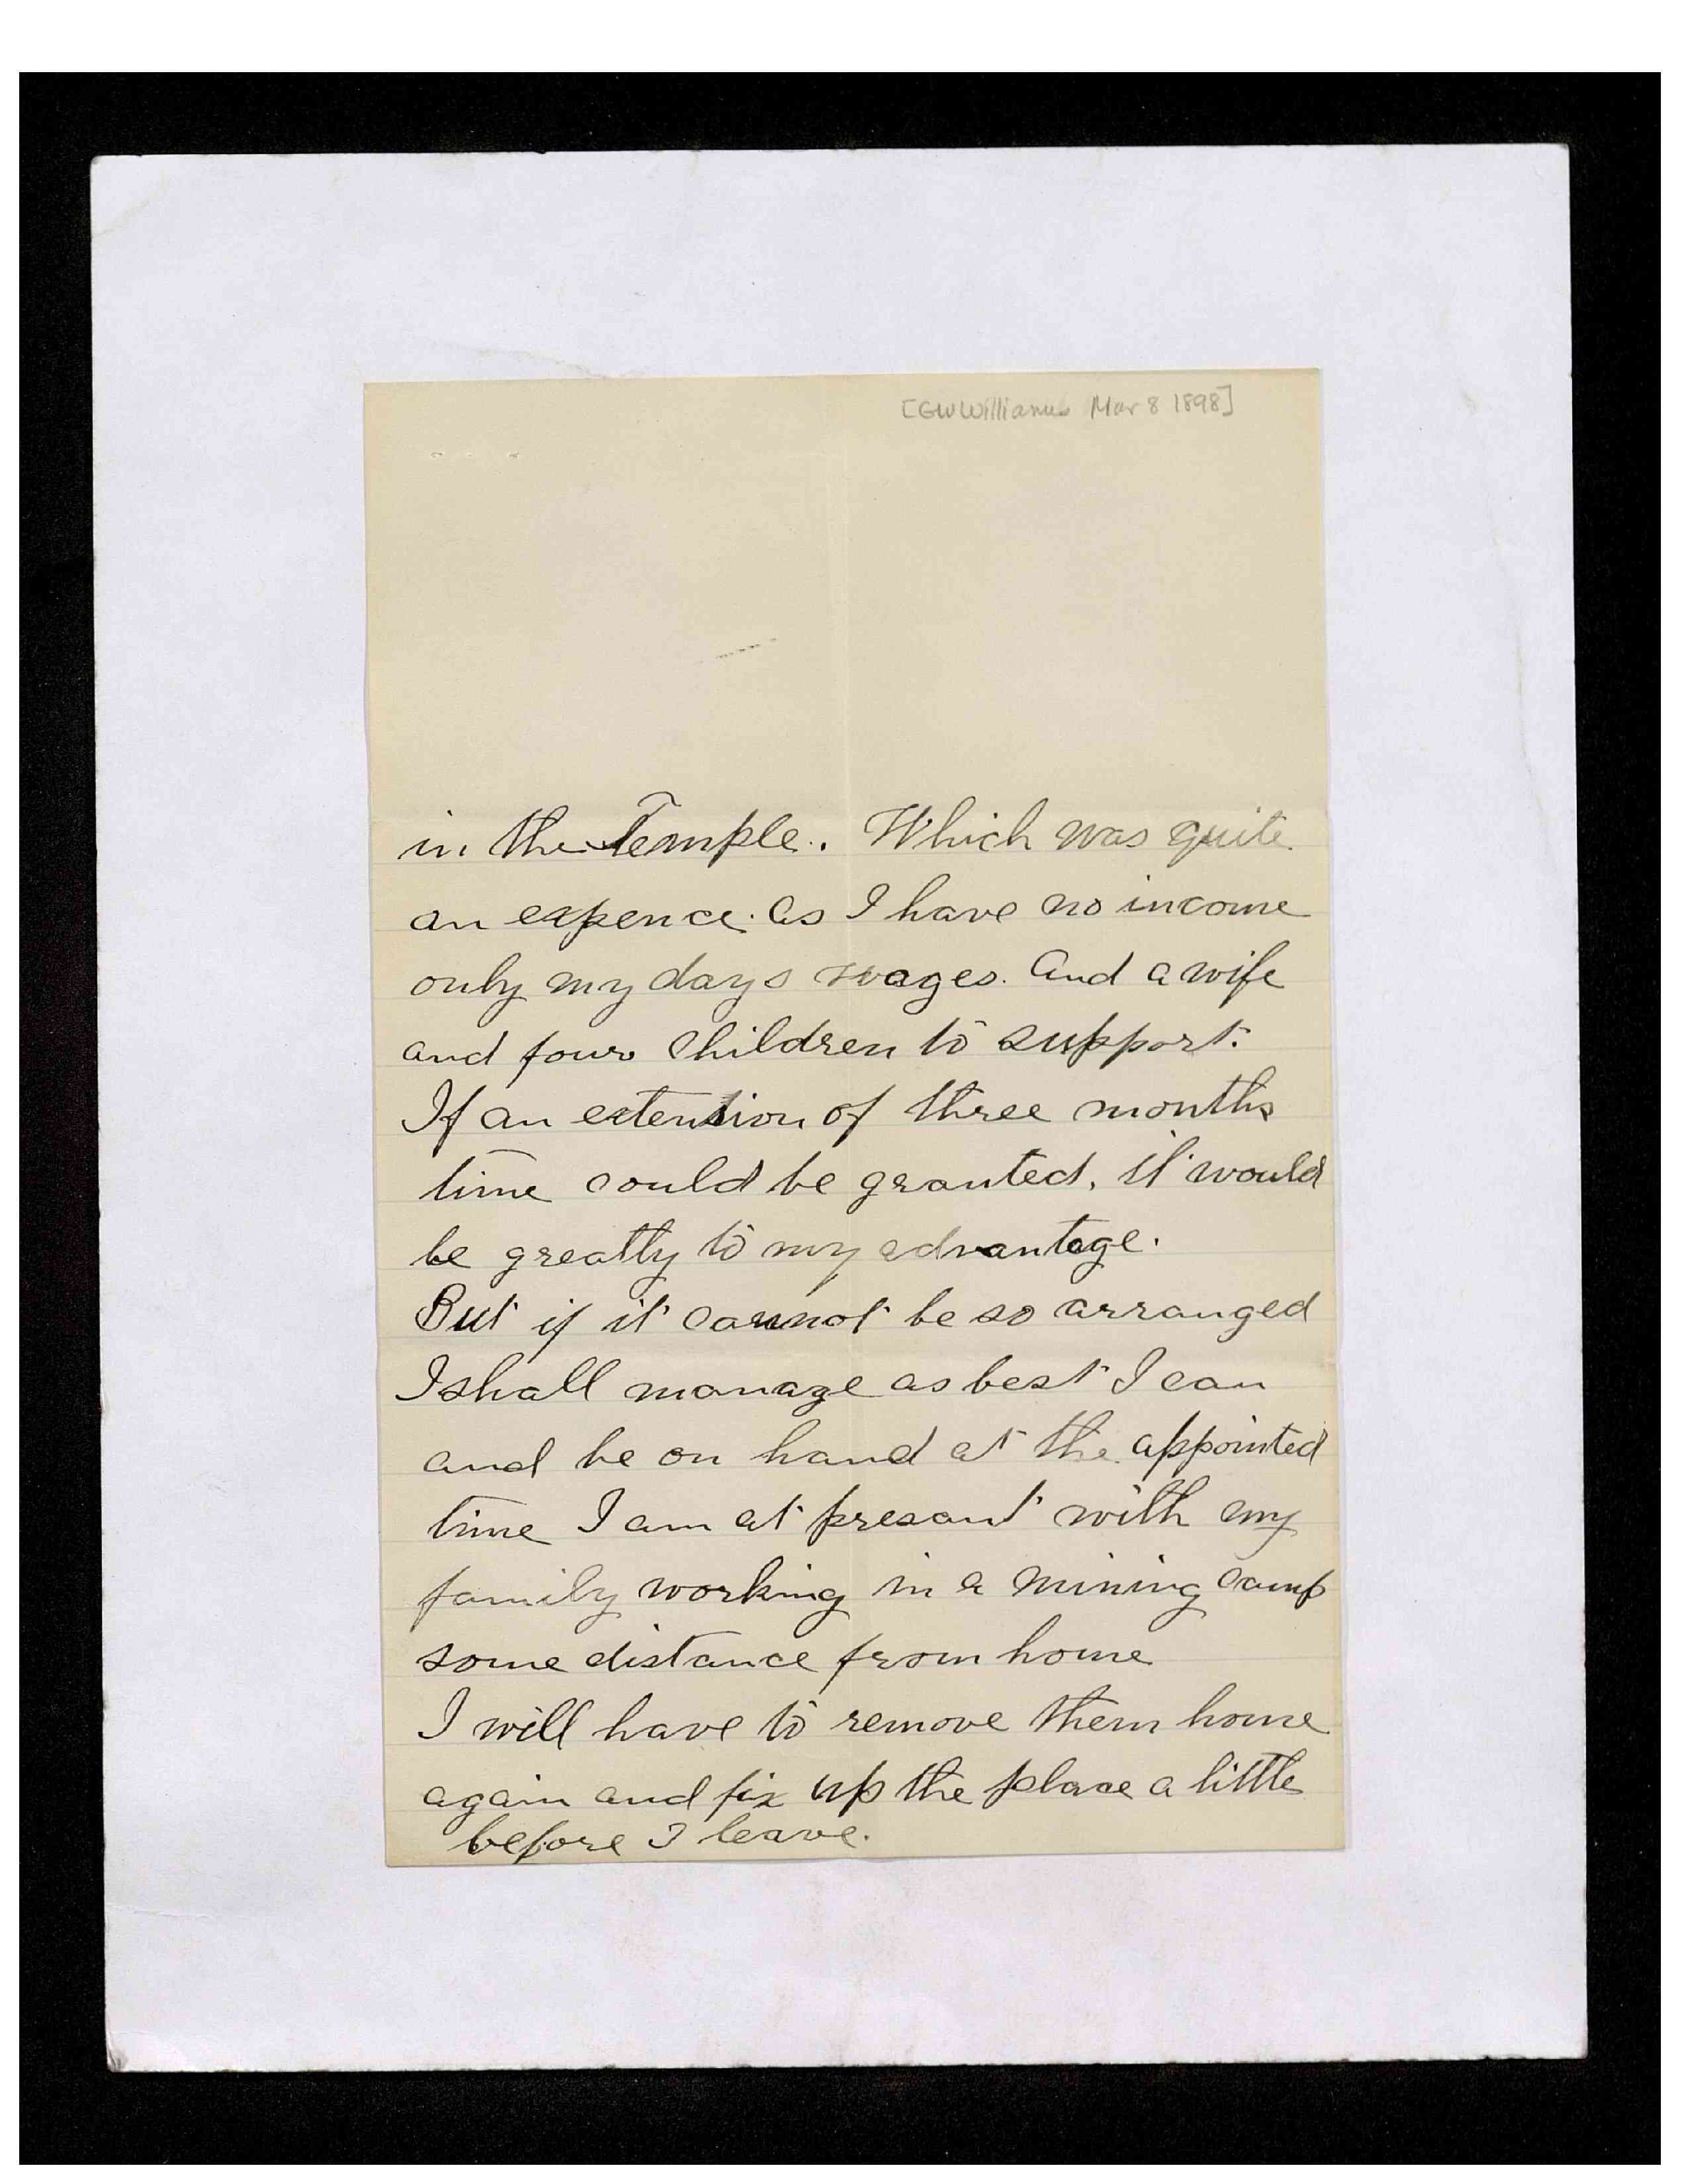 [GW Williams Mar 8 1898]
in the Temple. Which was quite
an expence. as I have no income
only my days wages. And a wife
and four children to support.
If an extention of three months
time could be granted, it would
be greatly to my advantage.
But if it cannot be so arranged
I shall manage as best I can
and be on hand at the appointed
time I am at presant with my
family working in a mining camp
some distance from home
I will have to remove them home
again and fix up the place a little
before I leave.